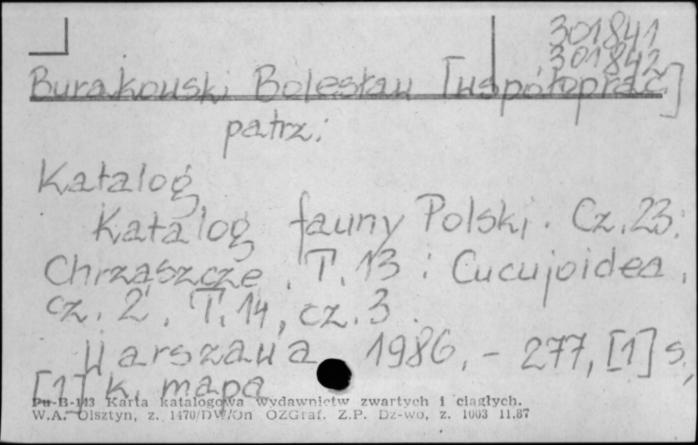 301841
301842
Burakowski Bolesław [współoprac]
patrz:
Katalog
Katalog fauny Polski. Cz. 23:
Chrząszcze, T. 13: Cucujoidea,
cz. 2, T. 14, cz. 3.
Warszawa 1986, - 277, [1] s,
[1] k. mapa
Pu-B-113 Karta katalogowa wydawnictw zwartych i ciągłych.
W.A. Olsztyn, z. 1470/DW/On OZGraf. Z.P. Dz-wo, z. 1003 11.87